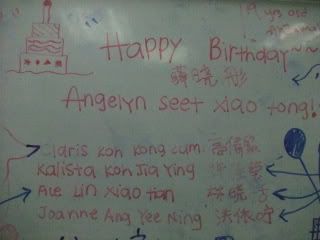 19 yrs old
Happy Birthday~~
晓彤
Angelyn seet xiao tong!
Claris Koh Kong Cam
Kalista Koh Jia Ying
Ace Lin xiao tian 林晓
Joanne Ang Yee Ning 洪依